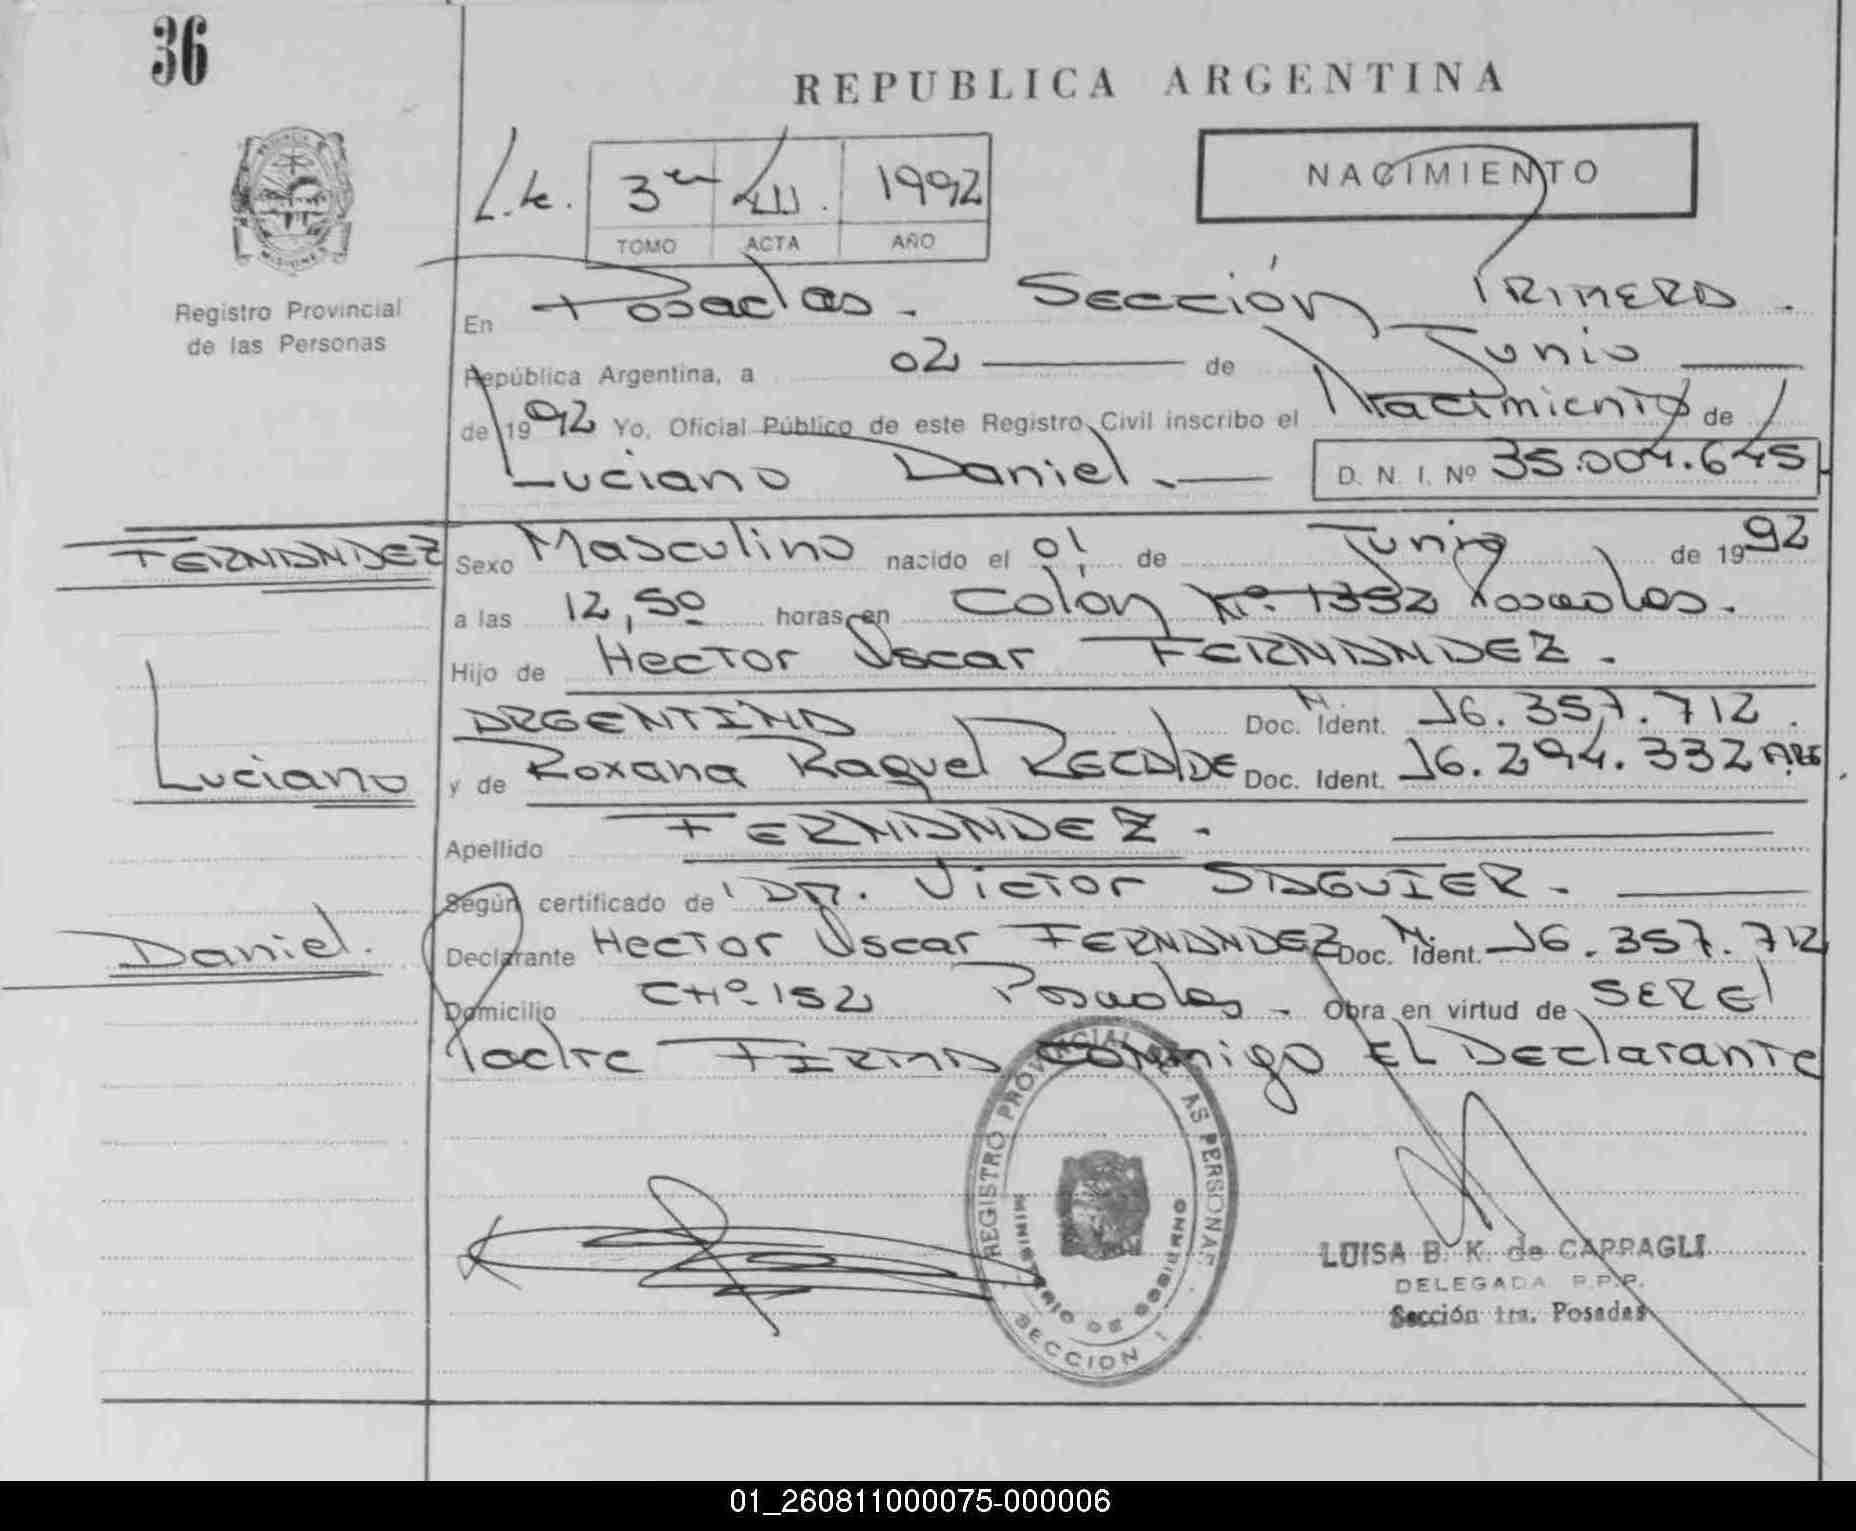 36
REPUBLICA ARGENTINA
3er 1992
TOMO ACTA AÑO
NACIMIENTO
MISIONES
Registro Provincial
de las Personas
En Posadas. Sección PRIMERA.
República Argentina, a 02 de Junio
de 1992 Yo, Oficial Público de este Registro Civil inscribo el Nacimiento de
Luciano Daniel.
D. N. I. Nº 35.004.645
FERNANDEZ
Sexo Masculino nacido el 01 de Junio de 1992
a las 12,50 horas en Colón Nº. 1352 Posadas.
Hijo de Hector Oscar FERNANDEZ.
ARGENTINA Doc. N. Ident. 16.357.712.
Luciano
y de Roxana Raquel RECALDE Doc. Ident. 16.294.332 ARG
Apellido FERNANDEZ.
Según certificado de DR. Victor SAGUIER.
Daniel.
Declarante Hector Oscar FERNANDEZ Doc. N. Ident. 16.357.712
Domicilio CHº. 152 Posadas. Obra en virtud de SER el
Padre FIRMA Conmigo EL Declarante
REGISTRO PROVINCIAL DE LAS PERSONAS
MINISTERIO DE GOBIERNO
SECCION 1
LUISA B. K. de CAPPAGLI
DELEGADA
Sección 1ra. Posadas
01_260811000075-000006